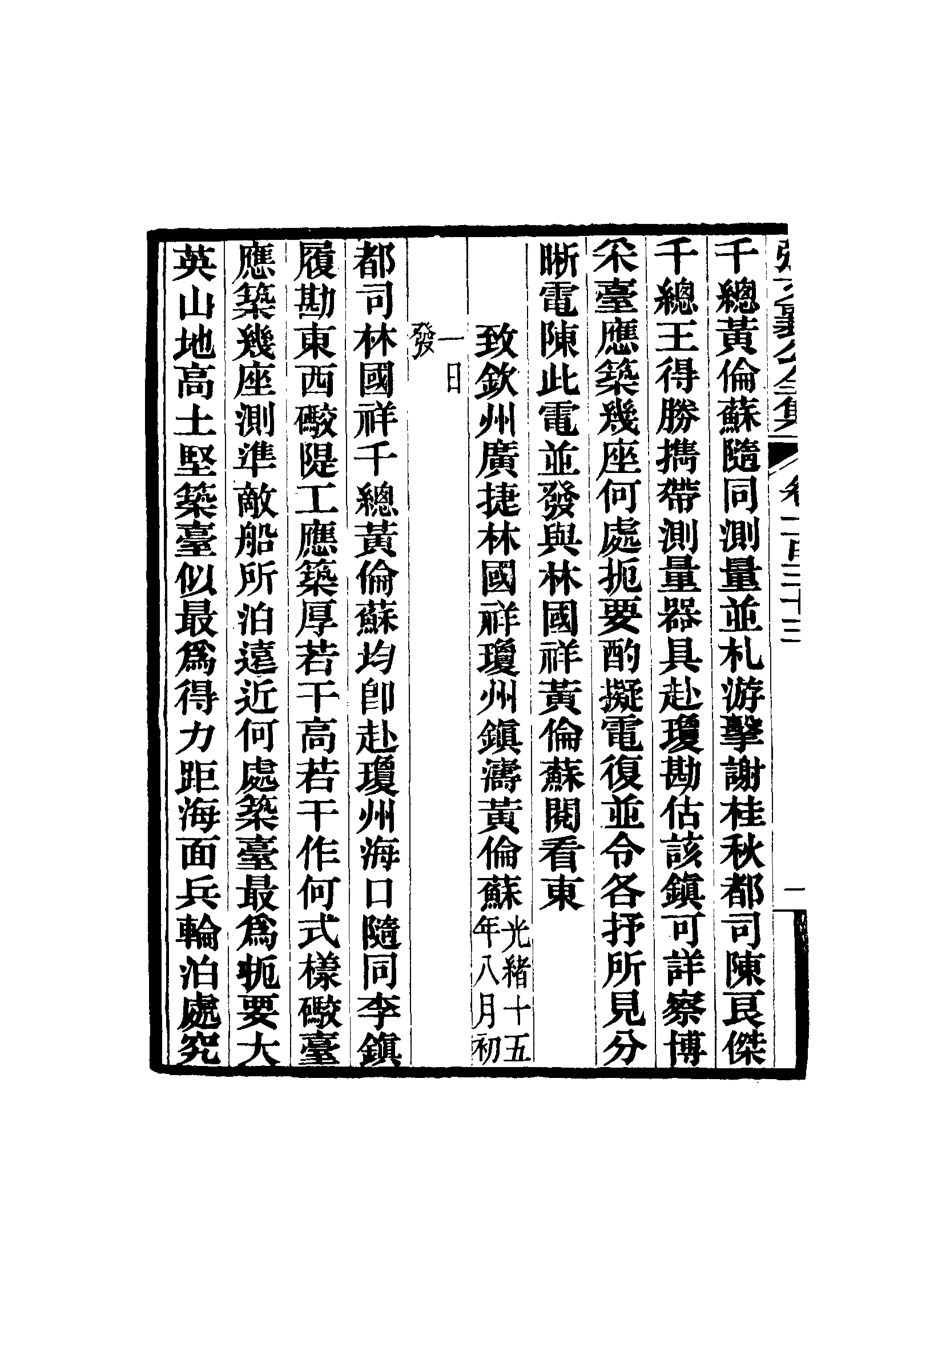 張文襄公全集 卷一百三十三 一
千總黃倫蘇隨同測量並札游擊謝桂秋都司陳良傑
千總王得勝攜帶測量器具赴瓊勘估該鎮可詳察博
采臺應築幾座何處扼要酌擬電復並令各抒所見分
晰電陳此電並發與林國祥黃倫蘇閱看東
致欽州廣捷林國祥瓊州鎮濤黃倫蘇光緒十五年八月初
一日發
都司林國祥千總黃倫蘇均卽赴瓊州海口隨同李鎮
履勘東西礮隄工應築厚若干高若干作何式樣礮臺
應築幾座測準敵船所泊遠近何處築臺最爲扼要大
英山地高土堅築臺似最爲得力距海面兵輪泊處究